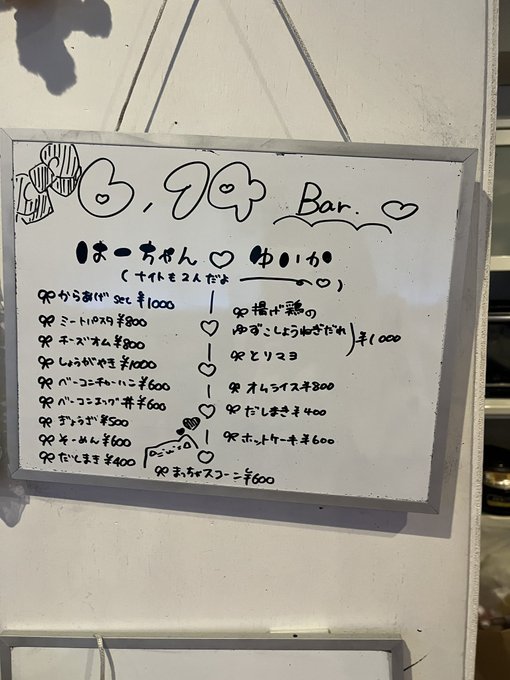 6,14 Bar.
はーちゃん ♡ ゆいか
(ナイトも2人だよ ♡)
からあげ 5こ ¥1000
ミートパスタ ¥800
チーズオム ¥800
しょうがやき ¥1000
ベーコンチャーハン ¥600
ベーコンエッグ丼 ¥600
ぎょうざ ¥500
そーめん ¥600
だしまき ¥400
揚げ鶏の
ゆずこしょうねぎだれ
とりマヨ
¥1000
オムライス ¥800
だしまき ¥400
ホットケーキ ¥600
まっちゃスコーン ¥600